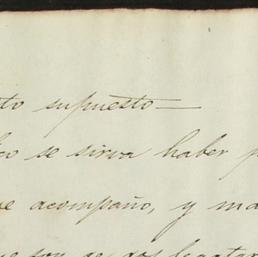 to supuesto—
se sirva haber p
e acompaño, y ma
que son